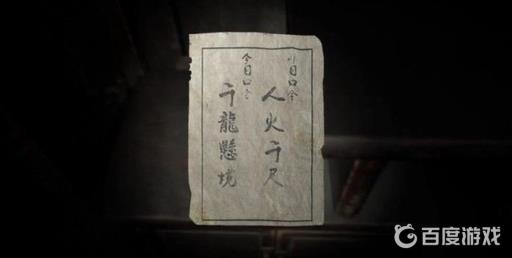 日口令
人火千尺
今日口令
千龍懸境
百度游戏